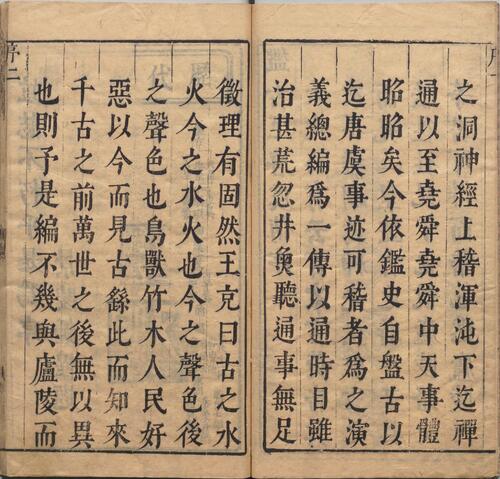 之洞神經上稽渾沌下迄禪
通以至堯舜堯舜中天事體
昭昭矣今依鑑史自盤古以
迄唐虞事迹可稽者爲之演
義總編爲一傳以通時目雖
治甚荒忽井奐聽通事無足
徵理有固然王克曰古之水
火今之水火也今之聲色後
之聲色也鳥獸竹木人民好
惡以今而見古繇此而知來
千古之前萬世之後無以異
也則予是編不幾與廬陵而
序二